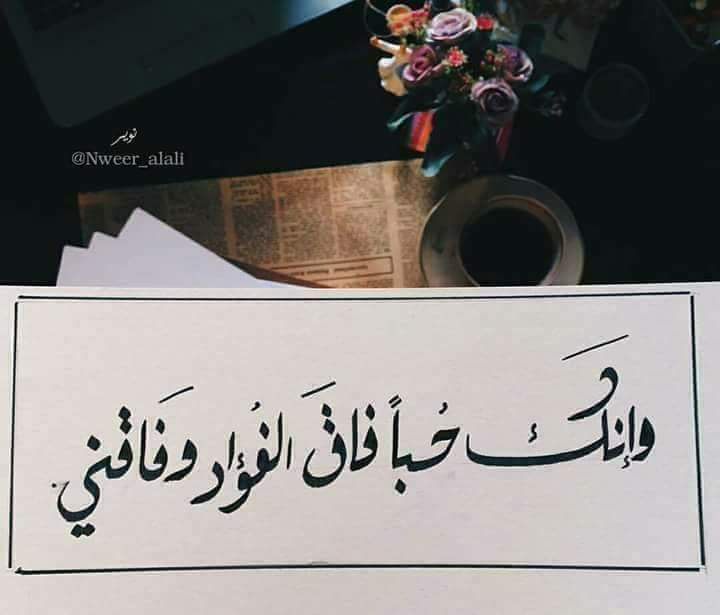 نوير
@Nweer_alali
وإنك حُباً فاقَ الفُؤاد وفَاقني